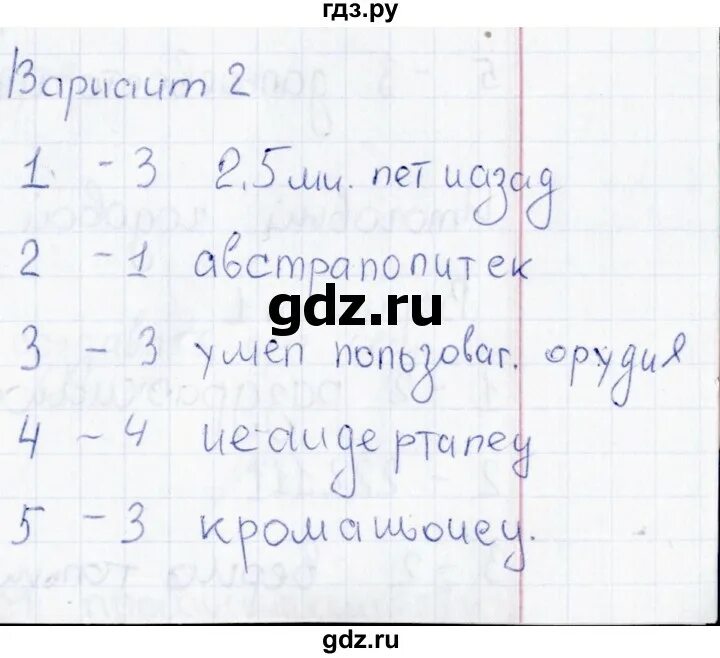 гдз.ру
Вариант 2
1 - 3 2,5 мл. лет назад
2 - 1 австралопитек
3 - 3 умел пользоват. орудия
4 - 4 неандерталец
5 - 3 кроманьонец.
gdz.ru
gdz.ru